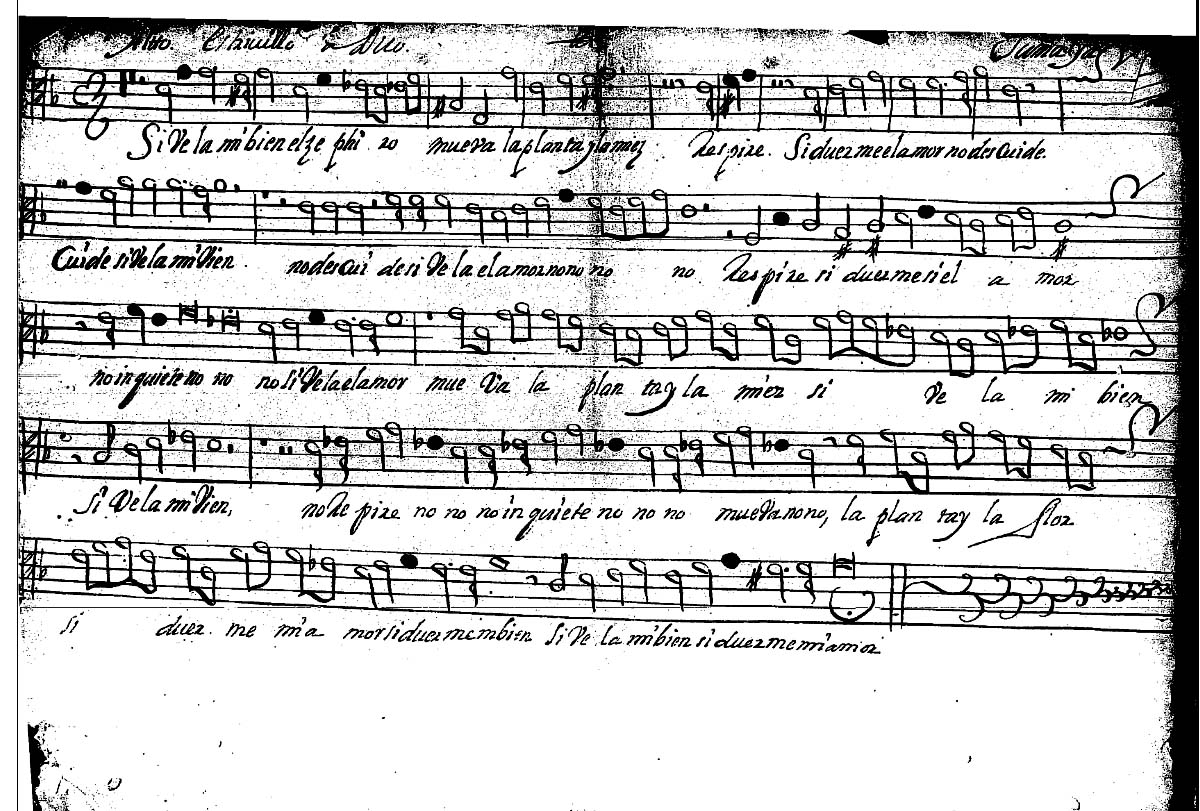 Alto. Estrivillo â Duo.
Si Vela mi bien el ze phi ro mueva la planta y la miez Respire. Si duerme el amor no descuide.
Cuide si Vela mi Vien. no descui de si Vela el amor no no no no Respire si duerme si el a mor
no inquiete no no no si Vela el amor mue Va la plan tay la miez si Ve la mi bien
Si Vela mi Vien, no Respire no no no inquiete no no no mueva no no, la plan tay la flor
si duer. me mi a mor si duerme mi bien si Ve la mi bien si duerme mi amor